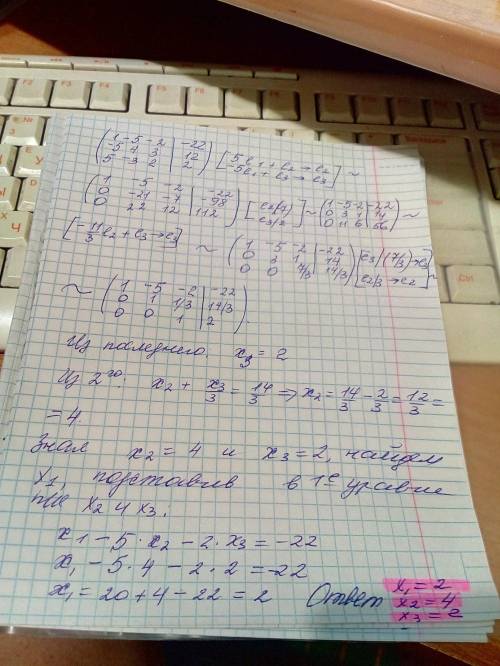 (1 -5 -2 | -22
-5 4 3 | 12
5 -3 2 | 2) [5e1 + e2 → e2
-5e1 + e3 → e3] ~
(1 -5 -2 | -22
0 -21 -7 | -98
0 22 12 | 112) [e2/(7)
e3/2] ~ (1 -5 -2 -22
0 3 1 14
0 11 6 56) ~
[-11/3 e2 + e3 → e3] ~ (1 -5 -2 | -22
0 3 1 | 14
0 0 7/3 | 14/3) [e3/(7/3) → e3
e2/3 → e2] ~
~ (1 -5 -2 | -22
0 1 1/3 | 14/3
0 0 1 | 2)
Из последнего, x3 = 2
Из 2го: x2 + x3/3 = 14/3 => x2 = 14/3 - 2/3 = 12/3 =
= 4.
Зная x2 = 4 и x3 = 2, найдем
x1, подставив в 1е уравне
ние x2 и x3:
x1 - 5 · x2 - 2 · x3 = -22
x1 - 5 · 4 - 2 · 2 = -22
x1 = 20 + 4 - 22 = 2 Ответ x1 = 2
x2 = 4
x3 = 2